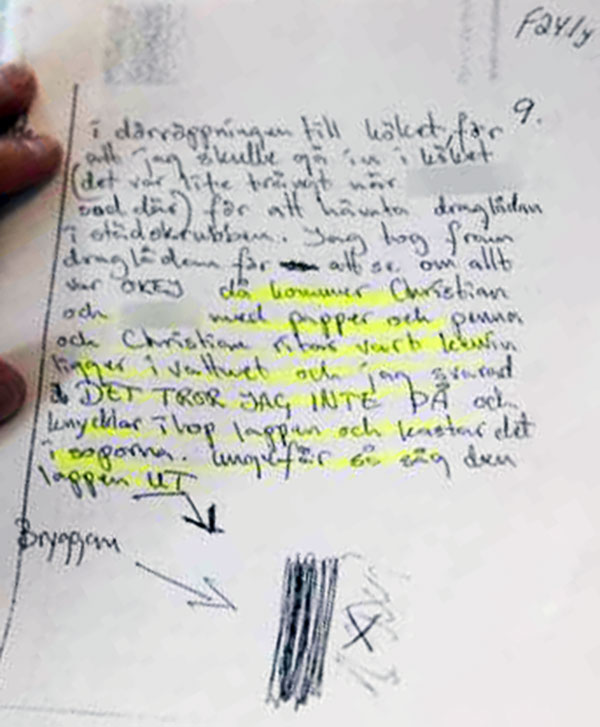 F24/y
9.
i dörröppningen till köket, för
att jag skulle gå in i köket
(det var lite trångt när
sad där) för att hämta draglådan
i städskrubben. Jag tog fram
draglådan för att se om allt
var OKEJ då kommer Christian
och med papper och penna
och Christian ritar vart kevin
ligger i vattnet och jag svarad
DET TROR JAG INTE PÅ och
knycklar ihop lappen och kastar det
i soporna. ungefär så såg den
lappen UT
Bryggan